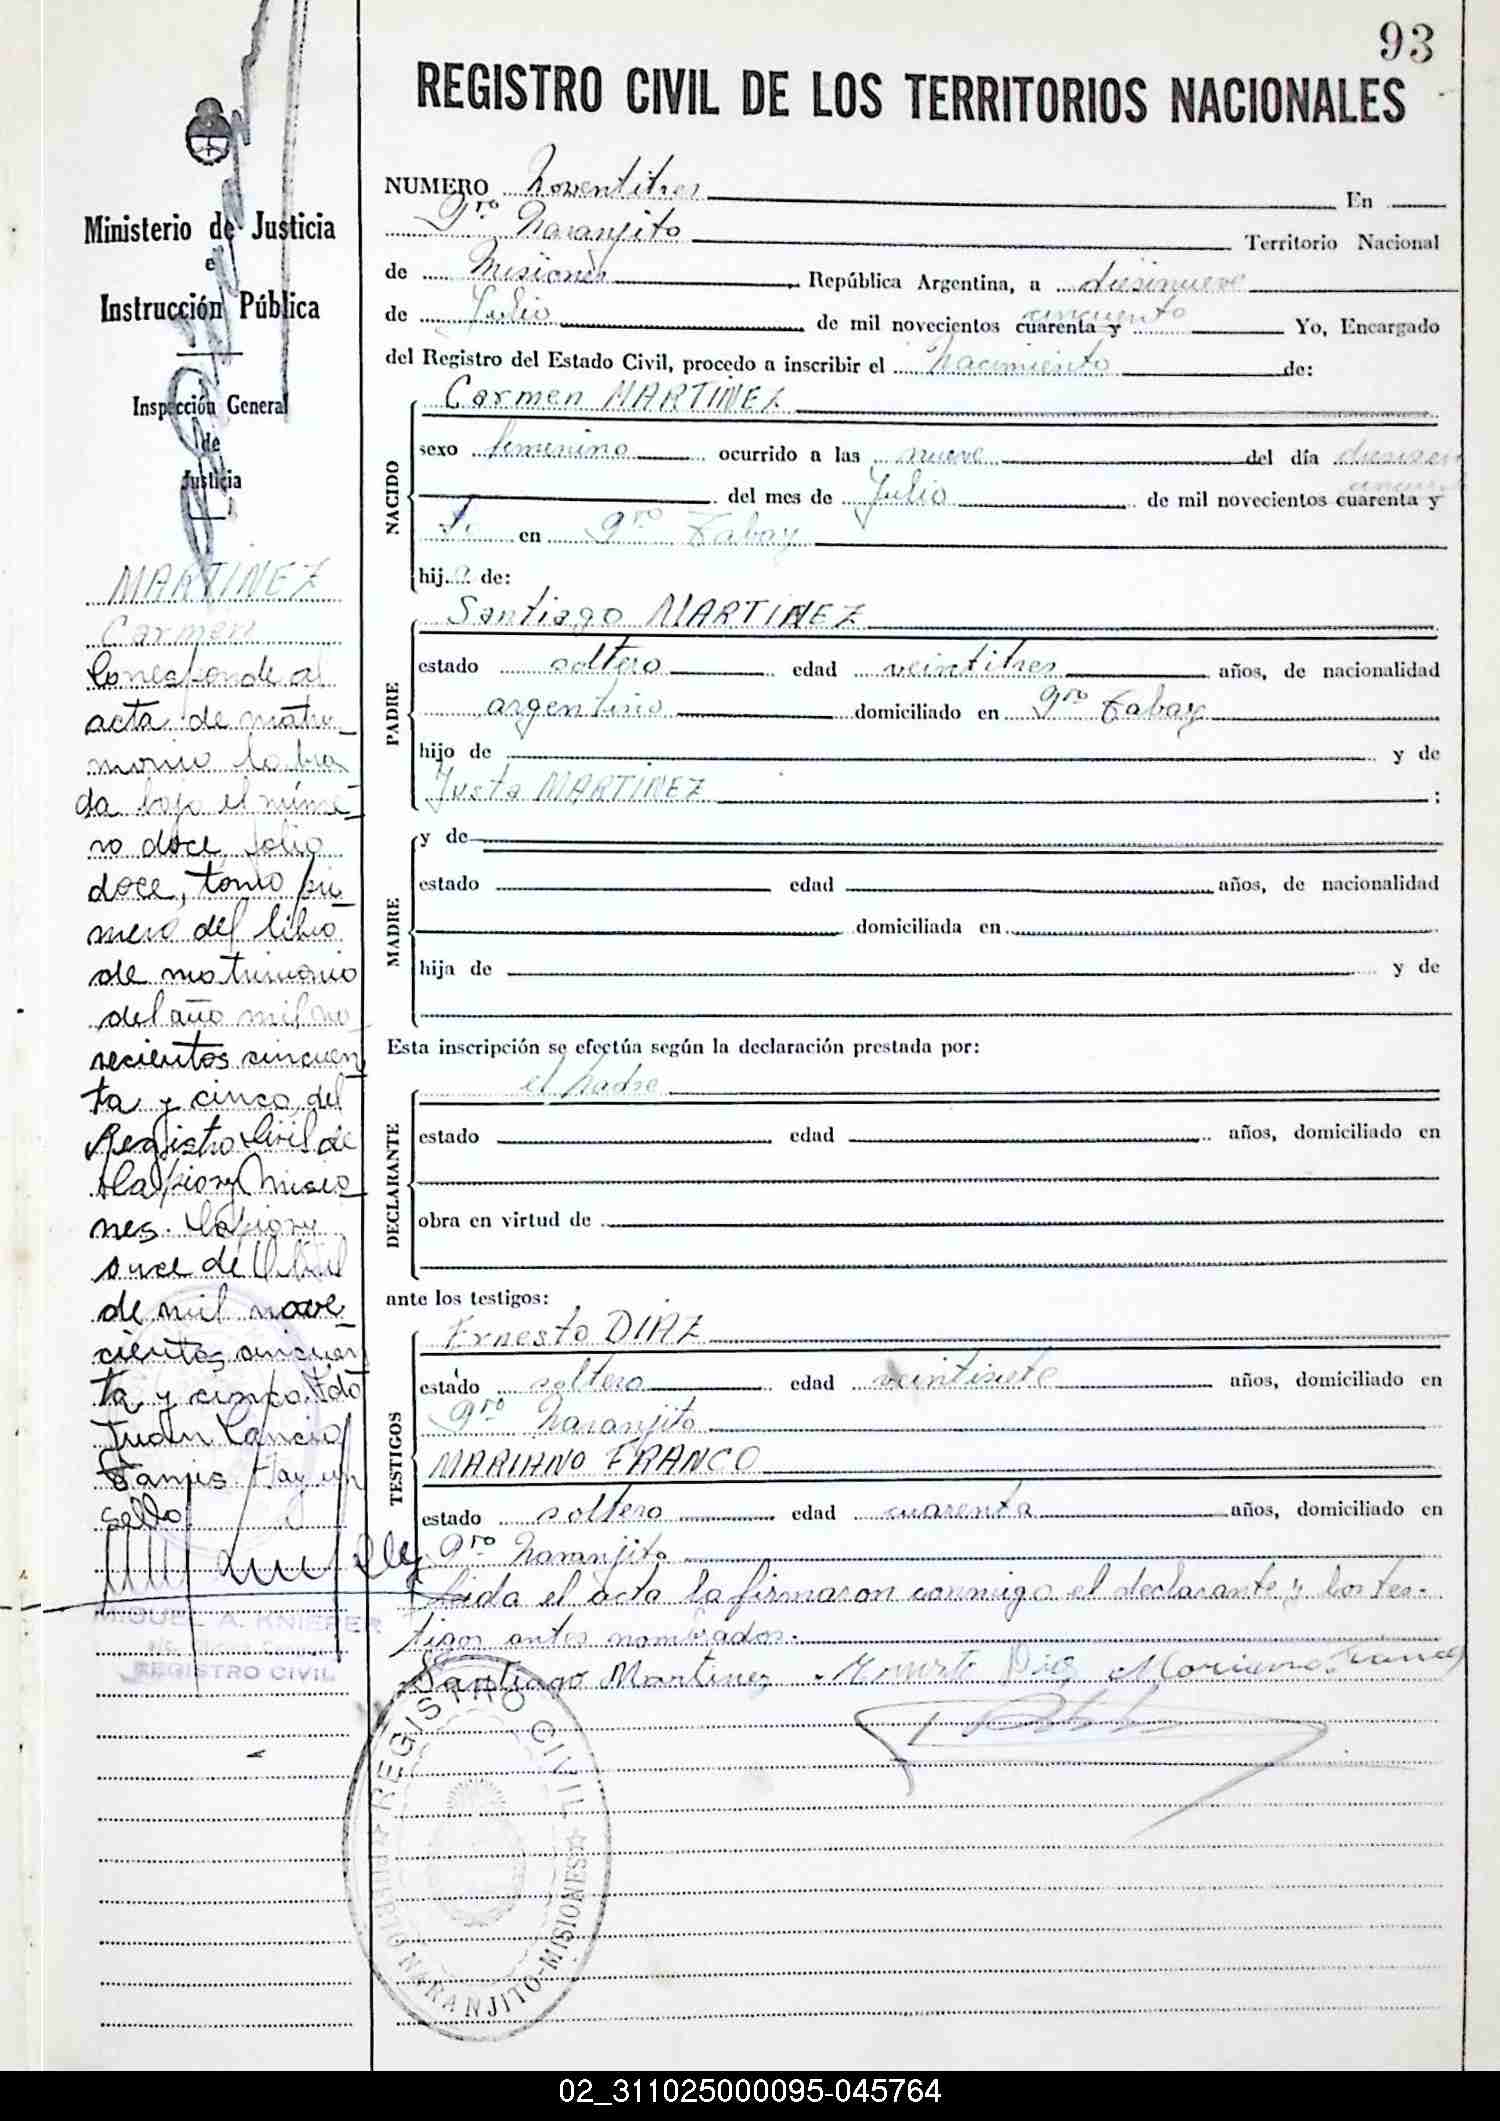 93
REGISTRO CIVIL DE LOS TERRITORIOS NACIONALES
Ministerio de Justicia
e
Instrucción Pública
Inspección General
de
Justicia
MARTINEZ
Carmen
Corresponde al
acta de matri
monio labra
da bajo el núme-
ro doce, folio
doce, tomo pri-
mero del libro
de matrimonio
del año mil no
vecientos cincuen
ta y cinco, del
Registro Civil de
Capiovy Misio
nes. Capiovy
once de Abril
de mil nove-
cientos cincuen
ta y cinco. Fdo
Juan
Hay un
sello
MIGUEL A. KNIEPER
REGISTRO CIVIL
NUMERO Noventitres En
Pro Naranjito Territorio Nacional
de Misiones República Argentina, a diesinueve
de Julio de mil novecientos cuarenta y cincuenta Yo, Encargado
del Registro del Estado Civil, procedo a inscribir el Nacimiento de:
NACIDO
Carmen MARTINEZ
sexo femenino ocurrido a las nueve del día
del mes de Julio de mil novecientos cuarenta y
en Pro Tabay
hija de:
PADRE
Santiago MARTINEZ
estado soltero edad veintitres años, de nacionalidad
argentino domiciliado en Pro Tabay
hijo de y de
Justa MARTINEZ ;
MADRE
y de
estado edad años, de nacionalidad
domiciliada en
hija de y de
Esta inscripción se efectúa según la declaración prestada por:
DECLARANTE
el padre
estado edad años, domiciliado en
obra en virtud de
ante los testigos:
TESTIGOS
Ernesto DIAZ
estado soltero edad veintisiete años, domiciliado en
Pro Naranjito
MARIANO FRANCO
estado soltero edad cuarenta años, domiciliado en
Pro Naranjito
Leida el acta la firmaron conmigo el declarante y los tes-
tigos antes nombrados.
Santiago Martinez Ernesto Diaz Mariano Franco
REGISTRO CIVIL
PUERTO NARANJITO-MISIONES
02_311025000095-045764